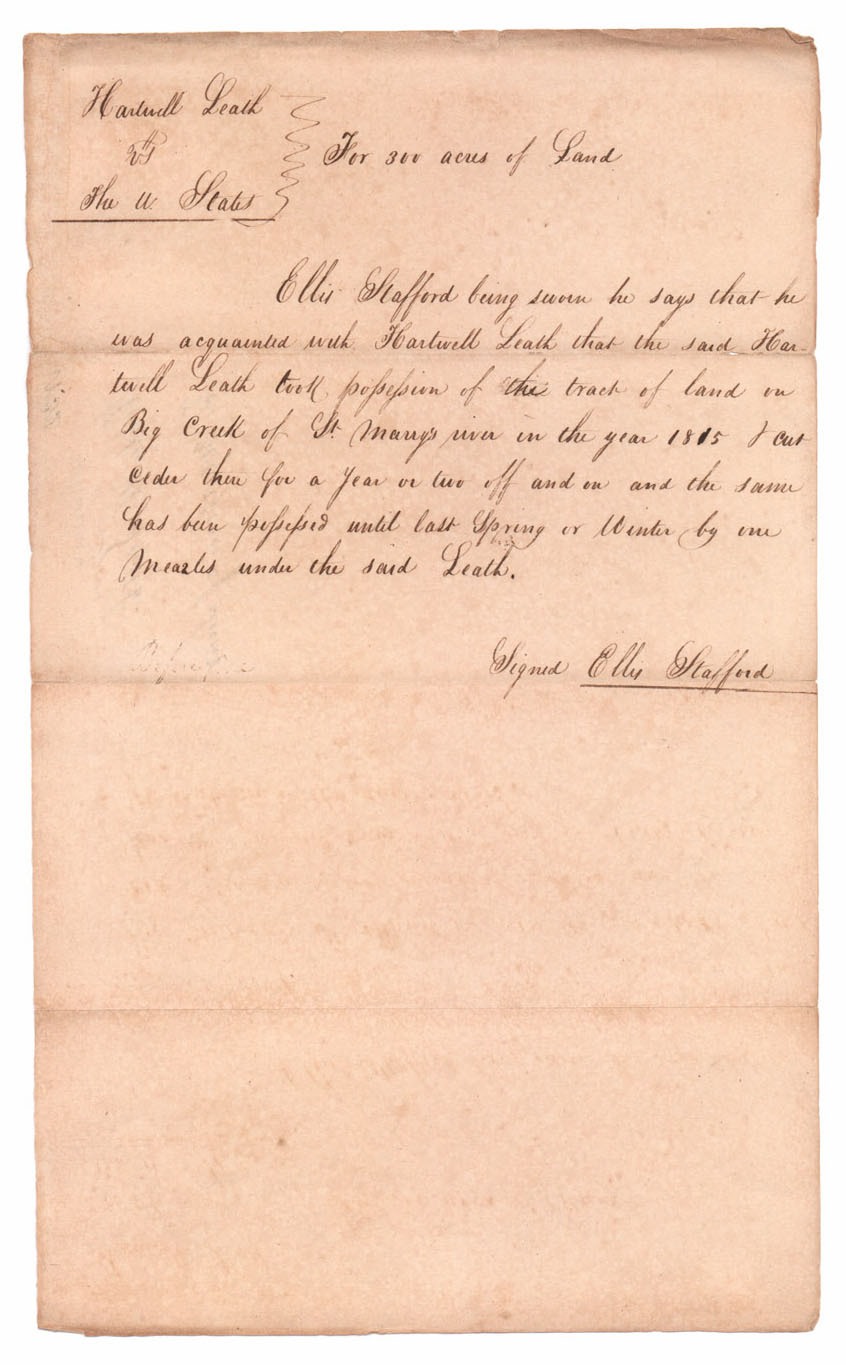 Hartwell Leath
vs
The U. States
For 300 acres of Land
Ellis Stafford being sworn he says that he
was acquainted with Hartwell Leath that the said Har-
twell Leath took possession of the tract of land on
Big Creek of St. Marry's river in the year 1815 & cut
Ceder there for a Year or two off and on and the same
has been possessed until last Spring or Winter by one
Mearles under the said Leath.
Signed Ellis Stafford